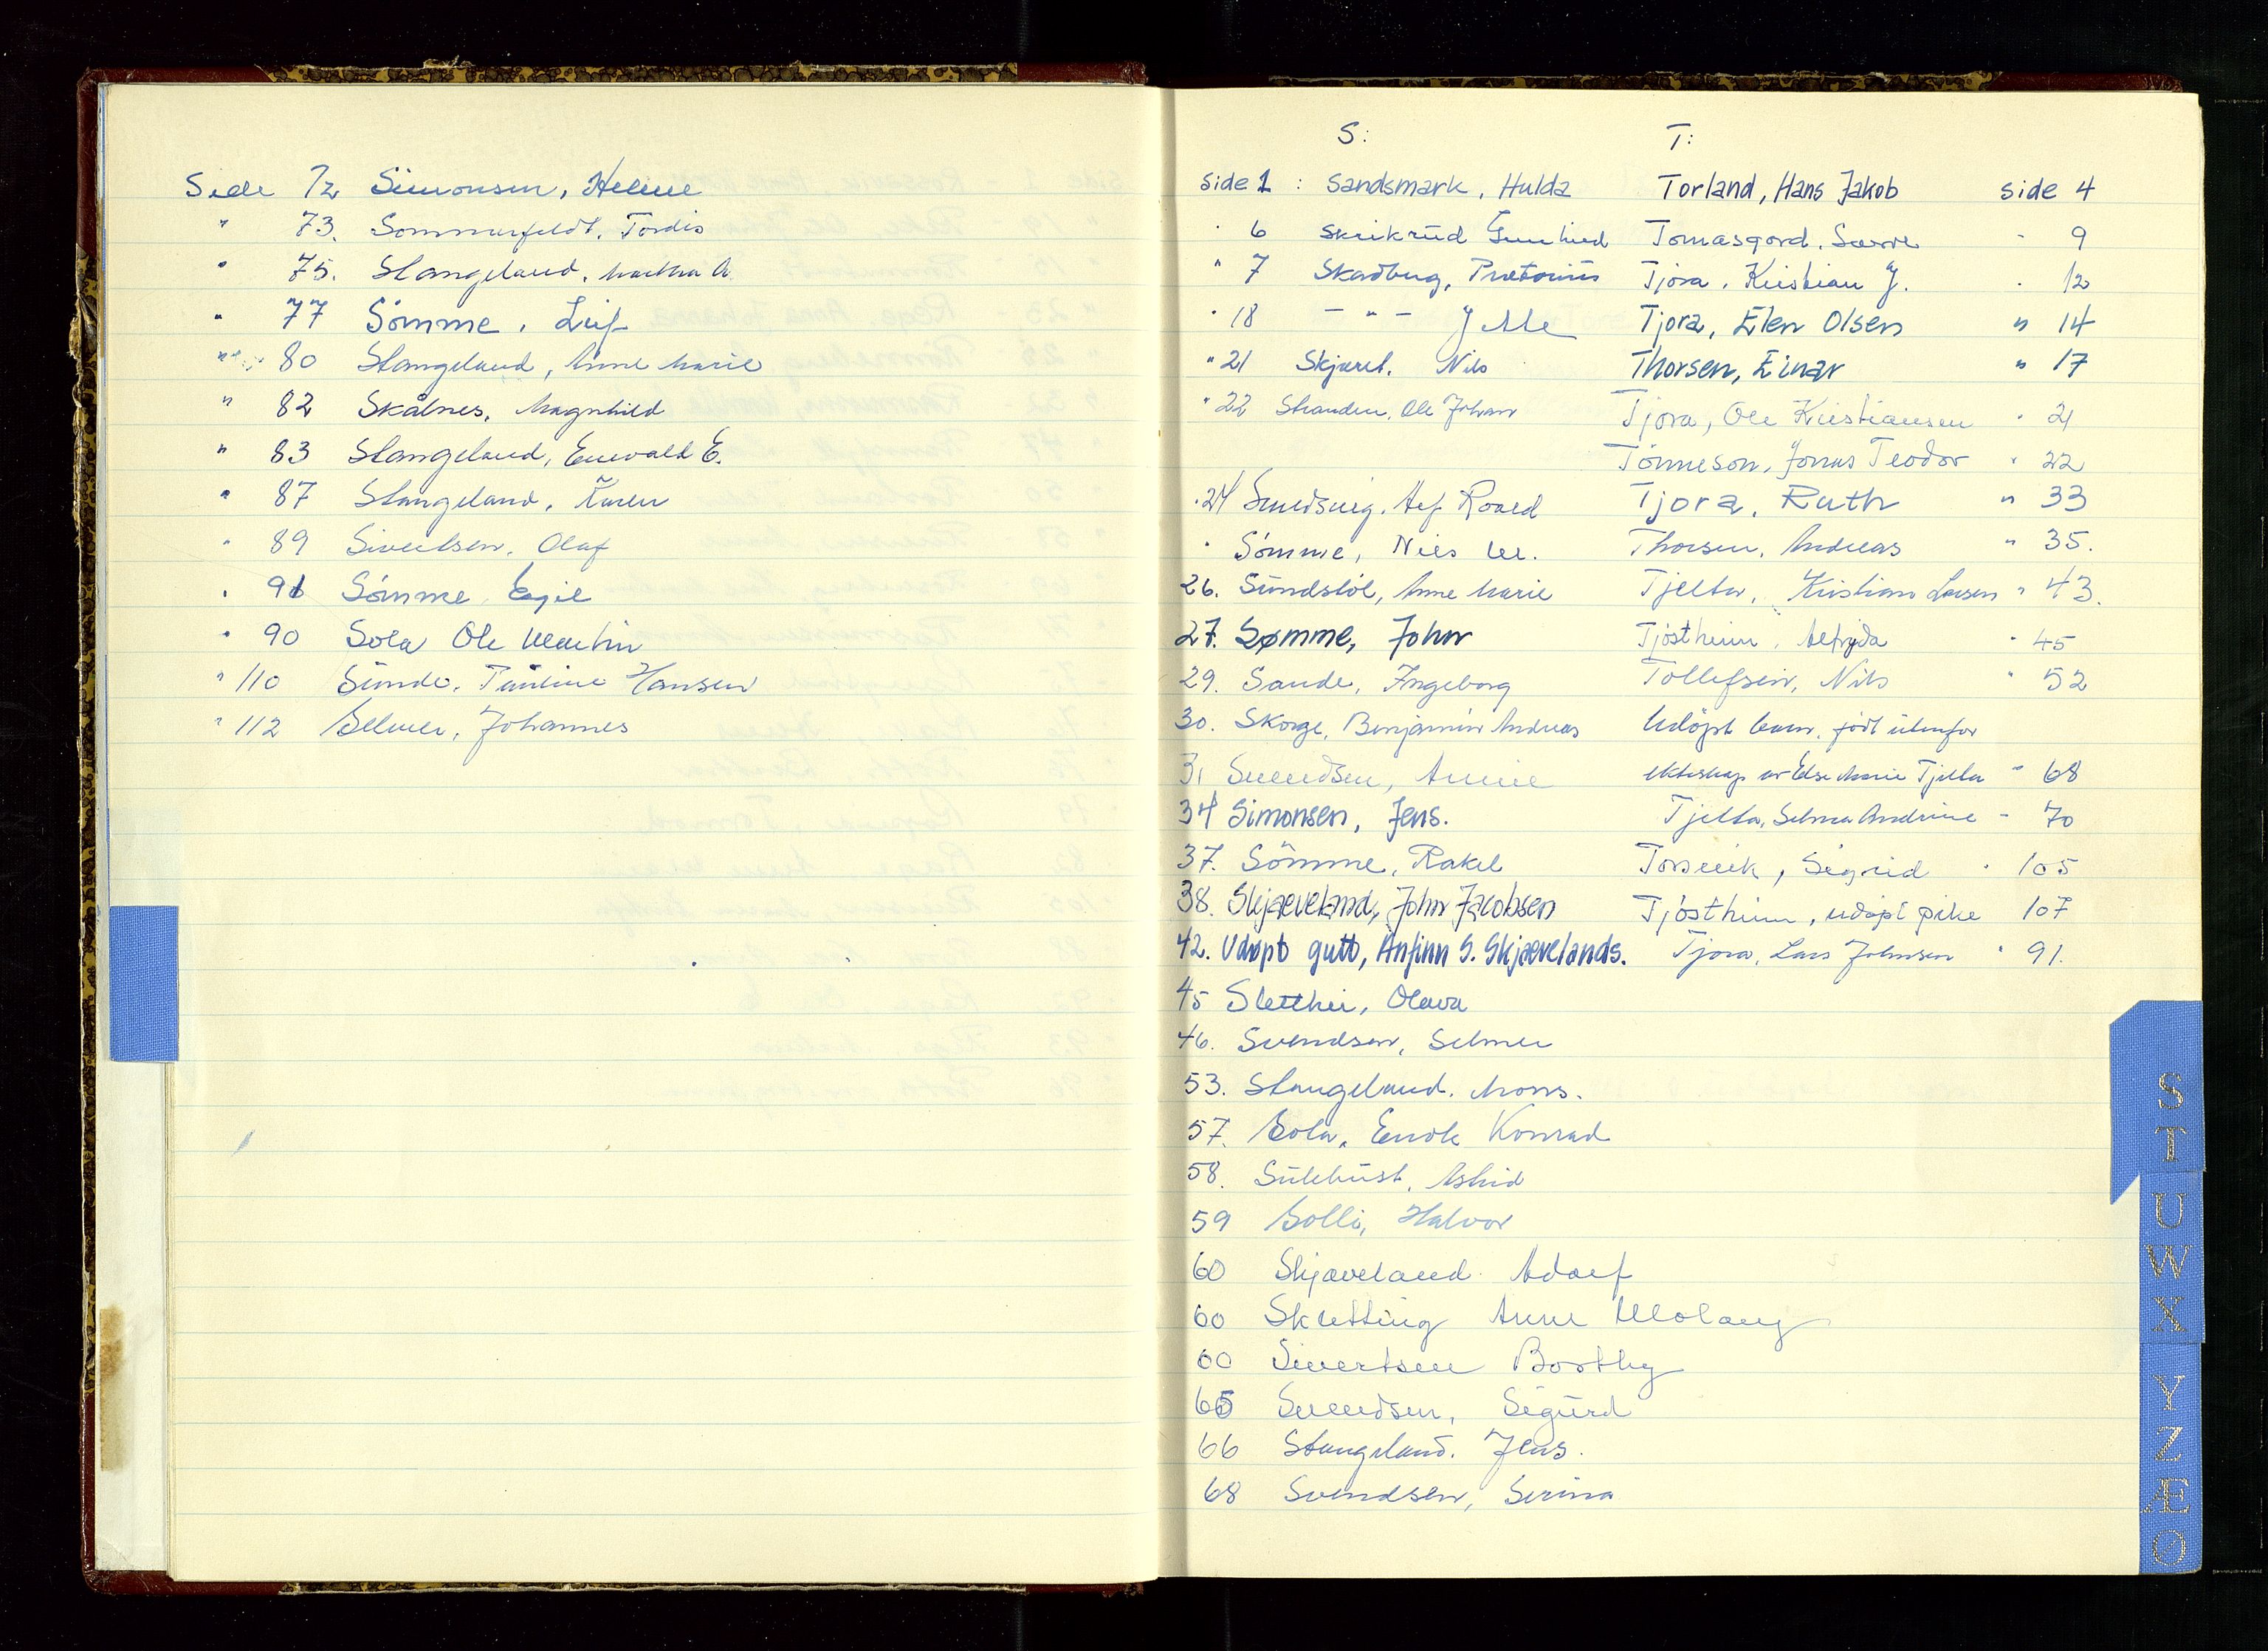 Side 72 Simonsen, Helene
" 73. Sommerfeldt, Tordis
" 75. Stangeland, Martha A
" 77 Sömme, Leif
" 80 Stangeland, Anne Marie
" 82 Skålnes, Magnhild
" 83 Stangeland, Enevald E.
" 87 Stangeland, Karen
" 89 Sivertsen, Olaf
" 91 Sömme Egil
" 90 Sola Ole Martin
" 110 Sunde, Pauline Hansen
" 112 Selmer, Johannes
S:
side 1 : Sandsmark, Hulda
" 6 Skeikrud Gunhild
" 7 Skadberg, Pretorius
" 18 - " -
" 21 Skjæret, Nils
" 22 Stranden, Ole Johan
" 24 Smedsvig, Alf Roald
" Sömme, Niels M.
26. Sundstöl, Anne Marie
27. Sømme, John
29. Sande, Ingeborg
30. Skorge, Benjamin Andreas
31 Svendsen, Annie
34 Simonsen, Jens.
37. Sömme, Rakel
38. Skjæveland, John Jacobsen
42. Udøpt gutt, Anfinn S. Skjævelands.
45 Sletthei, Olava
46. Svendsen, Selmer
53. Stangeland, Mons.
57. Sola, Enok Konrad
58. Sulebust, Astrid
59 Solli, Halvor
60 Skjæveland Adolf
60 Skretting Anne Molaug
60 Sivertsen Borthy
65 Svendsen, Sigurd
66 Stangeland, Jens.
68 Svendsen, Serina
T:
Torland, Hans Jakob side 4
Tomasgard, Sverre " 9
Tjora, Kristian J. " 12
Tjora, Elen Olsen " 14
Thorsen, Einar " 17
Tjora, Ole Kristiansen " 21
Tönneson, Jonas Teodor " 22
Tjora, Ruth " 33
Thorsen, Andreas " 35.
Tjelta, Kristian Larsen " 43.
Tjöstheim, Alfrida " 45
Tollefsen, Nils " 52
Udöpt barn, födt utenfor
ekteskap av Else Marie Tjelta " 68
Tjelta, Selma Andrine - 70
Torsvik, Sigrid " 105
Tjöstheim, udöpt pike 107
Tjora, Lars Johnsen " 91.
S
T
U
W
X
Y
Z
Æ
Ø